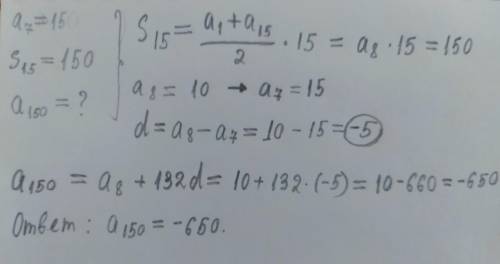 a₇ = 15
S₁₅ = 150
a₁₅₀ = ?
S₁₅ = (a₁ + a₁₅)/2 · 15 = a₈ · 15 = 150
a₈ = 10 → a₇ = 15
d = a₈ - a₇ = 10 - 15 = -5
a₁₅₀ = a₈ + 132d = 10 + 132 · (-5) = 10 - 660 = -650
Ответ: a₁₅₀ = -650.